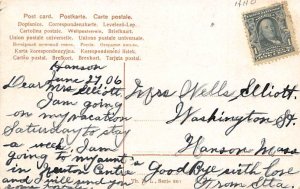 Post card. Postkarte. Carte postale.
Dopisnice. Correspondenzkarte. Levelező-Lap.
Cartolina postale. Weltpostverein. Briefkaart.
Union postale universelle. Unione postale universale.
Karta korespondencyjna. Korespondenční listek.
Brefkort. Brevkort. Tarjeta postal.
Hanson
June 27, 06
Dear Mrs Elliott
I am going
on my vacation
Saturday to stay
a week. I am
going to my aunt's
in Centre
and I will send you
Mrs Wells, Elliott
Washington St
Hanson Mass
Good Bye with love
From Etta